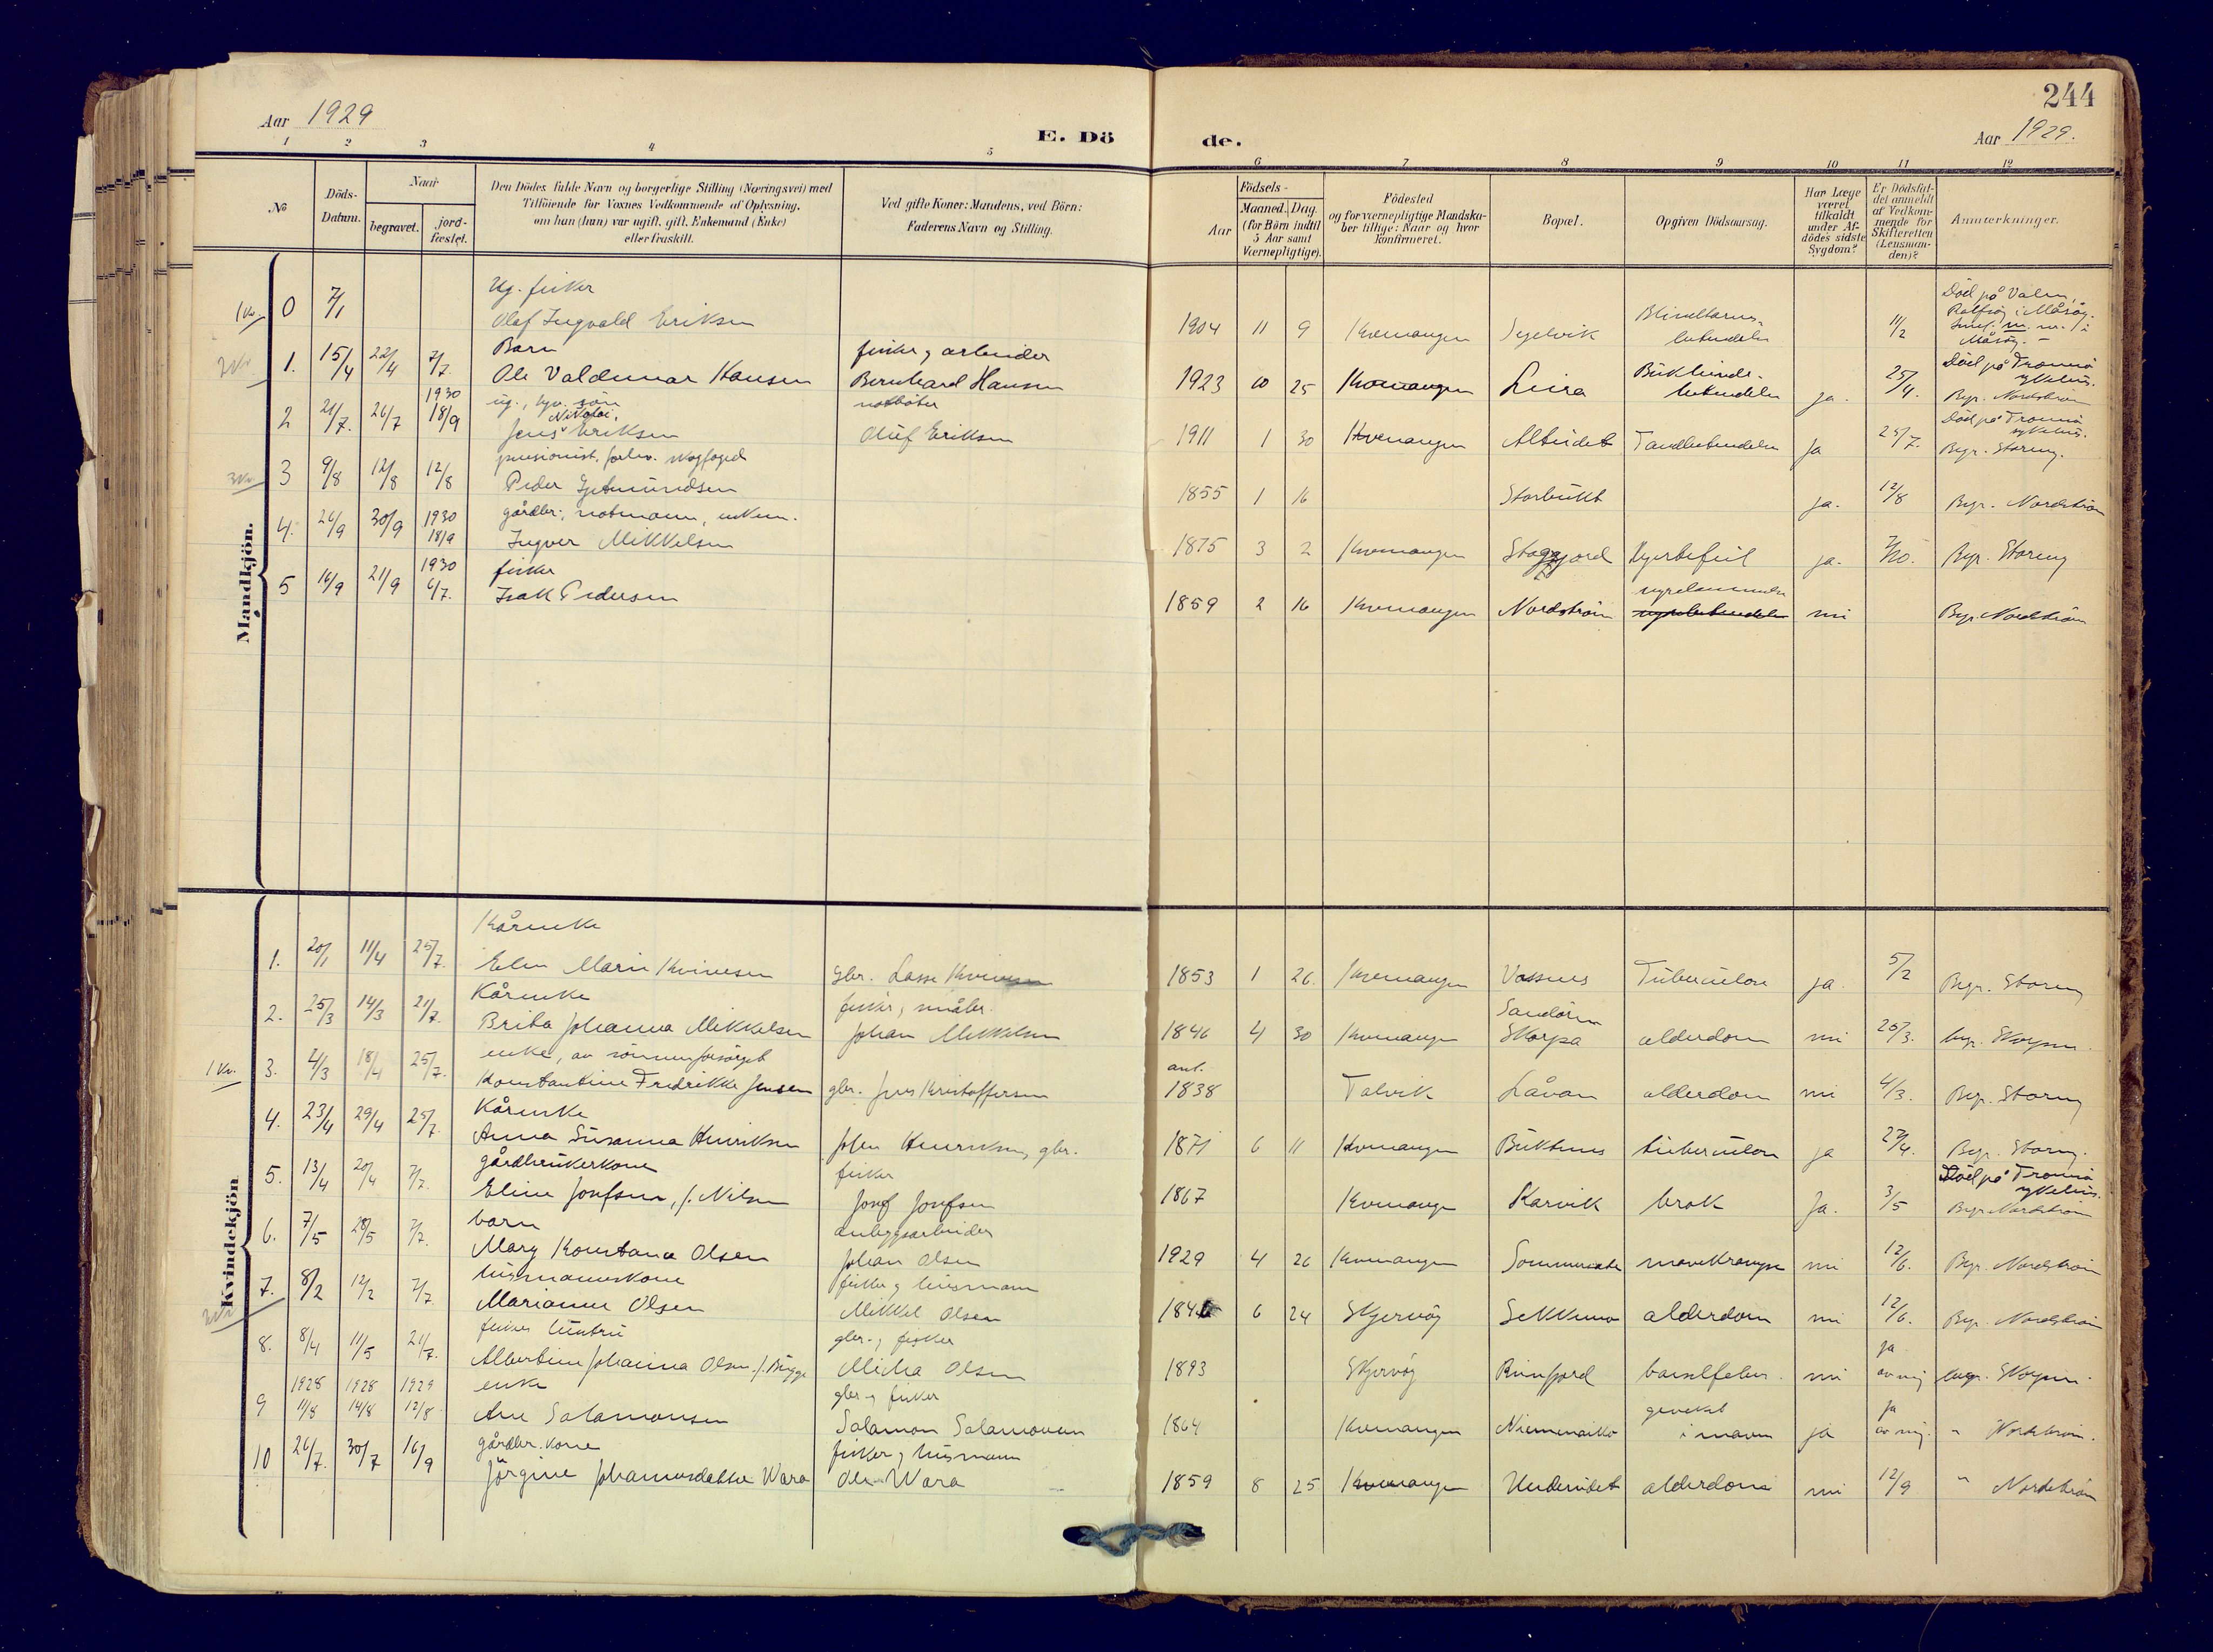 244
Aar 1929
E. Döde.
Aar 1929.
1 2 3 4 5 6 7 8 9 10 11 12
No
Döds-Datum.
Naar
begravet.
jord-fæstet.
Den Dödes fulde Navn og borgerlige Stilling (Næringsvei) med
Tilföiende for Voxnes Vedkommende af Oplysning,
om han (hun) var ugift, gift, Enkemand (Enke)
eller fraskilt.
Ved gifte Koner: Mandens, ved Börn:
Faderens Navn og Stilling.
Födsels-
Aar
Maaned. Dag.
(for Börn indtil
5 Aar samt
Værnepligtige).
Födested
og for værnepligtige Mandska-
ber tillige: Naar og hvor
konfirmeret.
Bopæl.
Opgiven Dödsaarsag.
Har Læge
været
tilkaldt
under Af-
dödes sidste
Sygdom?
Er Dödsfal-
det anmeldt
af Vedkom-
mende for
Skifteretten
(Lensman-
den)?
Anmærkninger.
Mandkjön.
Ug. fisker Död på Valen,
0 7/1 Olaf Ingvald Eriksen 1904 11 9 Kvænangen Segelvik Blindtarms-betendelse 11/2 Rolfsöy i Måsöy.
Barn fisker og arbeider Död på Tromsö sykehus.
1. 15/4 22/4 7/7. Ole Valdemar Hansen Bernhard Hansen 1923 10 25 Kvænangen Leira Bukhinde-betendelse ja. 25/4. Begr. Nordström
1930 ug., hjv. sön notböter Död på Tromsö sykehus.
2 21/7. 26/7 18/9 Jens Nikolai Eriksen Oluf Eriksen 1911 1 30 Kvænangen Alteidet Tandbetendelse Ja 25/7. Begr. Storeng.
pensionist, forhv. skogfoged
3 9/8 12/8 12/8 Peder Gjetmundsen 1855 1 16 Storbukt ja. 12/8 Begr. Nordström
gårdbr., notmann, enkem.
4. 26/9 30/9 1930 18/9 Ingver Mikkelsen 1875 3 2 Kvænangen Stogfjord Hjertefeil ja. 7/10. Begr. Storeng
1930 fisker
5 16/9 21/9 6/7. Isak Pedersen 1859 2 16 Kvænangen Nordström nei Begr. Nordström
Kvindekjön
Kårenke
1. 20/1 11/4 25/7. Elen Marie Kvivesen Gbr. Lasse 1853 1 26. Kvænangen Vasnes Tuberculose ja. 5/2 Begr. Storeng
Kårenke fisker, småbr. Sandören
2. 25/3 14/3 21/7. Brita Johanna Mikkelsen Johan Mikkelsen 1846 4 30 Kvænangen Skorpa alderdom nei 25/3. begr. Skorpen.
enke, av sönnen forsörget ant.
3. 2/3 18/4 25/7. Konstantine Fredrikke Jensen gbr. Jens Kristoffersen 1838 Talvik Låvan alderdom nei 4/3. Begr. Storeng
Kårenke
4. 23/4 29/4 25/7. Anna Susanna Henriksen John Henriksen, gbr. 1871 6 11 Kvænangen Buktenes tuberculose ja 27/4. Begr. Storeng.
gårdbrukerkone fisker Död på Tromsö sykehus.
5. 13/4 20/4 7/7. Eline Josefsen, f. Nilsen Josef Josefsen 1867 Kvænangen Karvik brok Ja. 3/5 Begr. Nordström
barn anleggsarbeider
6. 7/5 28/5 7/7. Mary Konstana Olsen Johan Olsen 1929 4 26 Kvænangen Sommersete mavekrampe nei 12/6. Begr. Nordström
husmannskone fisker og husmann
7. 8/2 12/2 7/7 Marianne Olsen Mikkel Olsen 6 24 Skjervöy Sekkemo alderdom nei 12/6. Begr. Nordström
fiskers hustru gbr. og fisker ja
8. 8/4 11/5 21/7. Albertine Johanna Olsen, f. Bugge Micha Olsen 1893 Skjervöy Reinfjord barselfeber. nei av mig begr. Skorpen.
1928 1928 1929 enke gbr. og fisker gevekst ja
9 11/8 14/8 12/8 Ane Salamonsen Salamon Salamonsen 1864 Kvænangen Niemenaikko i maven ja av mig. " Nordström.
gårdbr. kone fisker og husmann
10 26/7. 30/7 16/9 Jörgine Johannesdatter Wara Ole Wara 1859 8 25 Kvænangen Undereidet alderdom nei 12/9 " Nordström